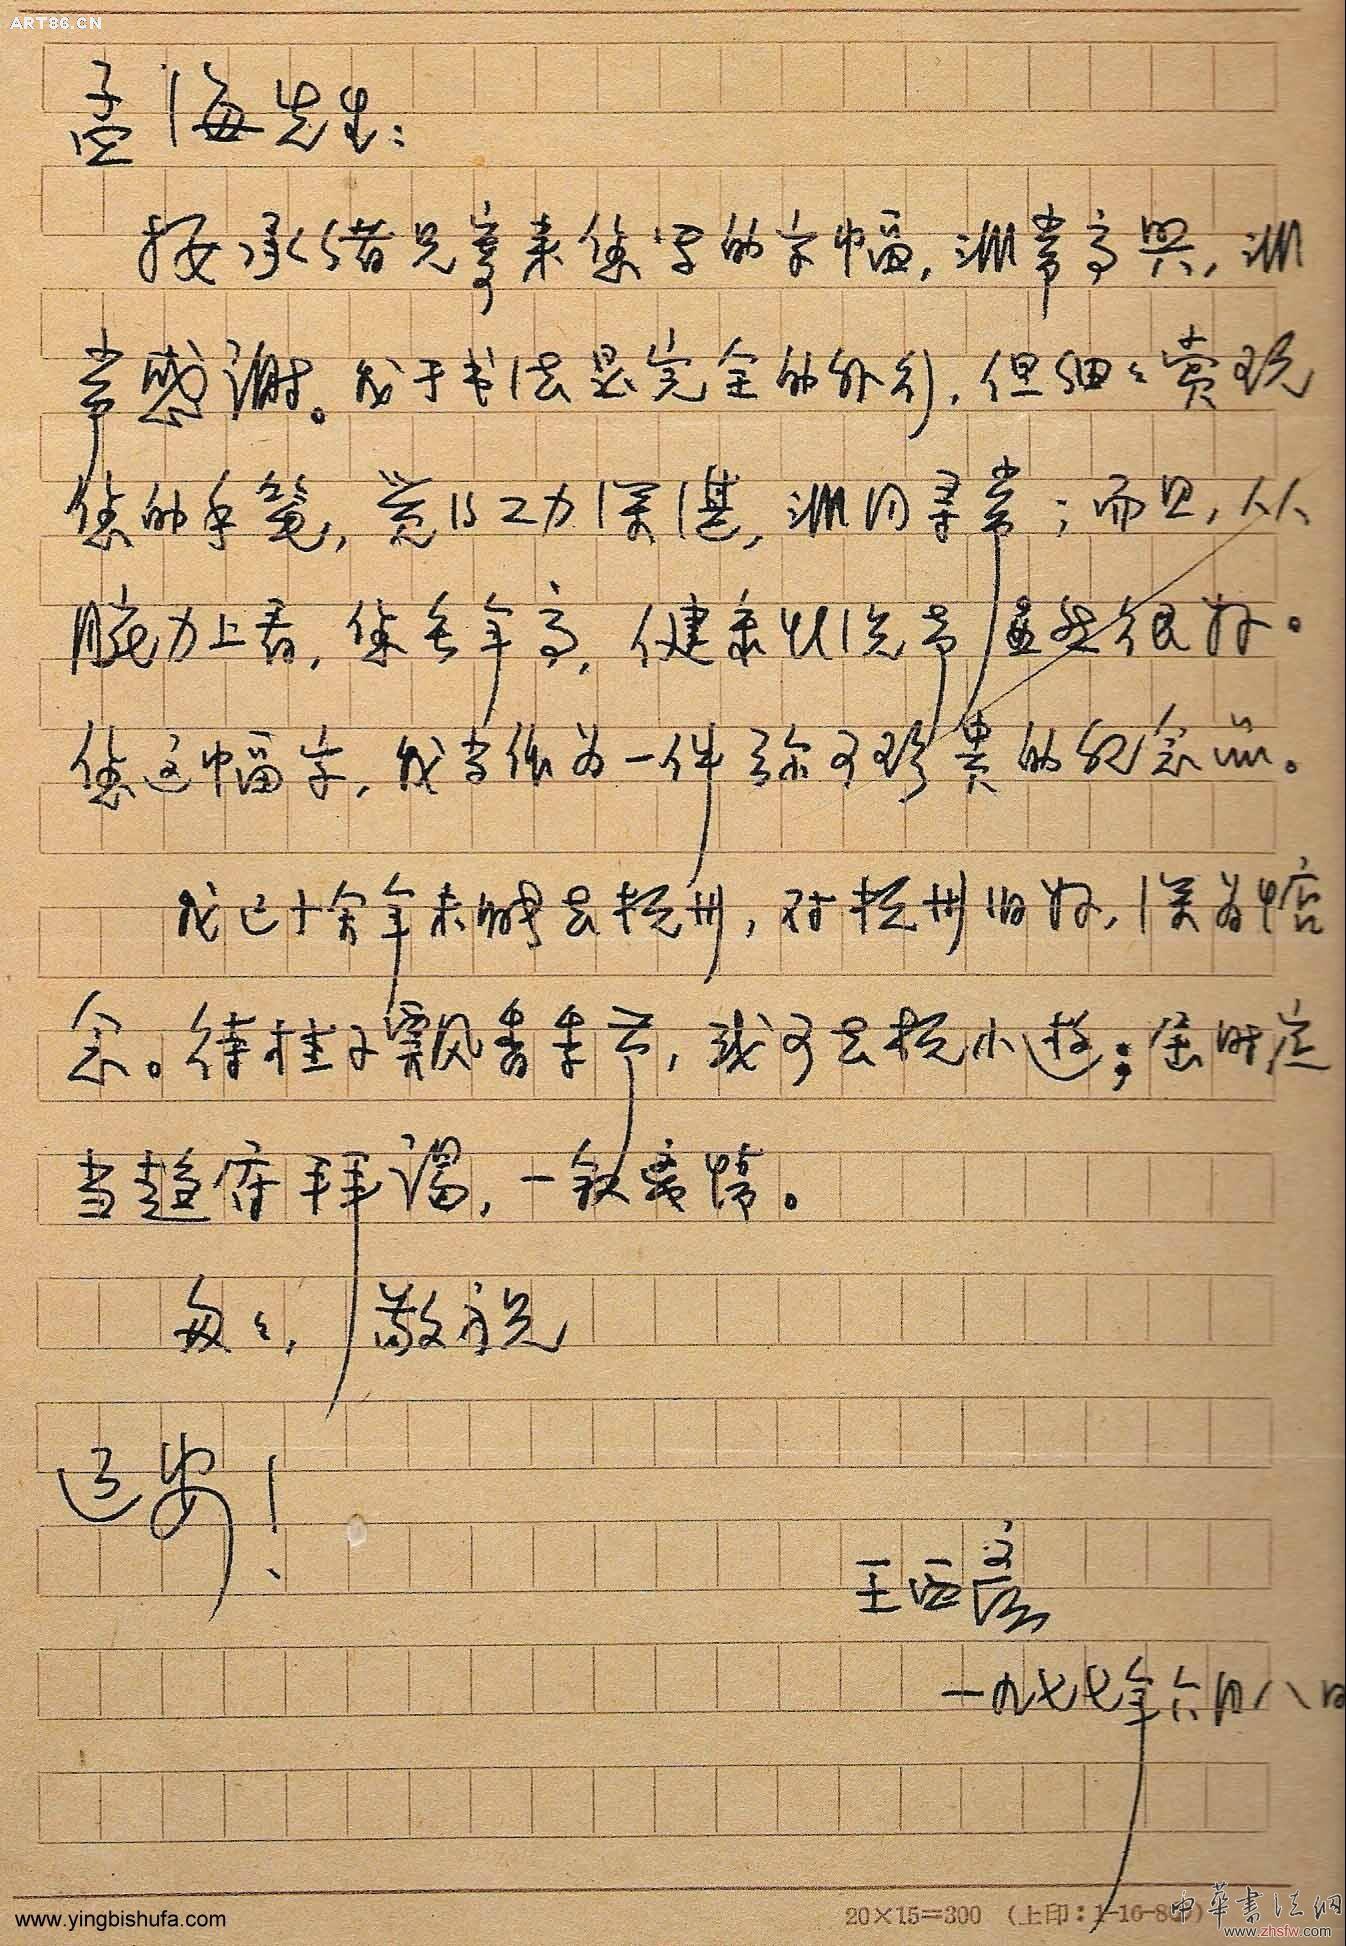 ART86.CN
孟海先生：
接承绪兄寄来您写的字幅，非常高兴，非
常感谢。我于书法是完全的外行，但细々赏玩
您的手笔，觉得工力深湛，非同寻常；而且，从
腕力上看，您年高，健康状况显然很好。
您这幅字，我当作为一件弥可珍贵的纪念品。
我已十余年未能去杭州，对杭州旧好，深为惦
念。待桂子飘香季节，或可去杭小游；届时定
当趋府拜谒，一叙离情。
匆々，敬祝
近安！
王西彦
一九七七年六月八日
www.yingbishufa.com
20×15=300 （上印：1-16-80）
中华书法网
www.zhsfw.com